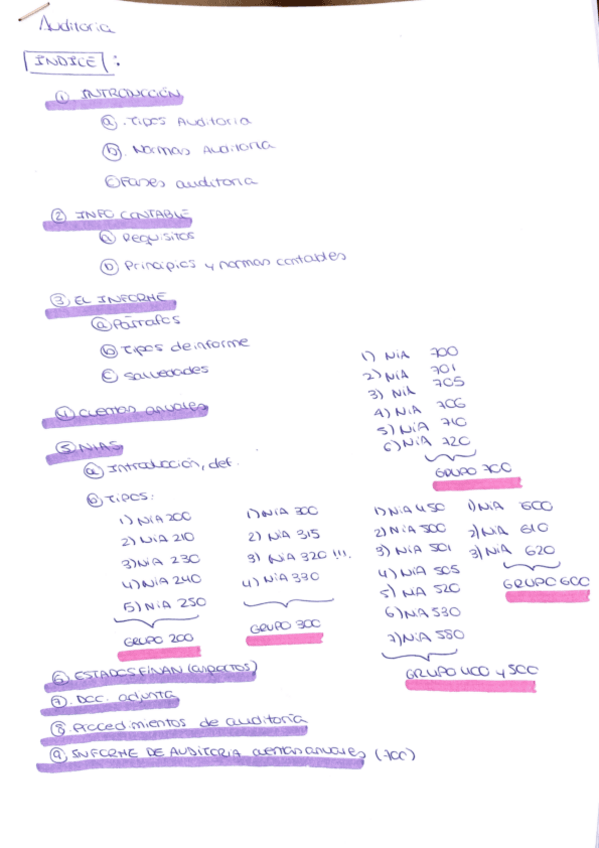 Auditoria
INDICE:
① INTRODUCCIÓN
ⓐ. Tipos Auditoria
ⓑ. Normas Auditoria
ⓒ Fases auditoria
② INFO CONTABLE
ⓐ Requisitos
ⓑ Principios y normas contables
③ EL INFORME
ⓐ Párrafos
ⓑ Tipos de informe
ⓒ Salvedades
④ Cuentas anuales
⑤ NIAS
ⓐ Introducción, def.
ⓑ Tipos:
1) NIA 200
2) NIA 210
3) NIA 230
4) NIA 240
5) NIA 250
GRUPO 200
1) NIA 300
2) NIA 315
3) NIA 320 !!!.
4) NIA 330
GRUPO 300
1) NIA 450
2) NIA 500
3) NIA 501
4) NIA 505
5) NA 520
6) NIA 530
7) NIA 580
GRUPO 400 y 500
1) NIA 600
2) NIA 610
3) NIA 620
GRUPO 600
1) NIA 700
2) NIA 701
3) NIA 705
4) NIA 706
5) NIA 710
6) NIA 720
GRUPO 700
⑥ ESTADOS FINAN (aspectos)
⑦. DOC. adjunta
⑧ Procedimientos de auditoría
⑨ INFORME DE AUDITORIA cuentas anuales (700)